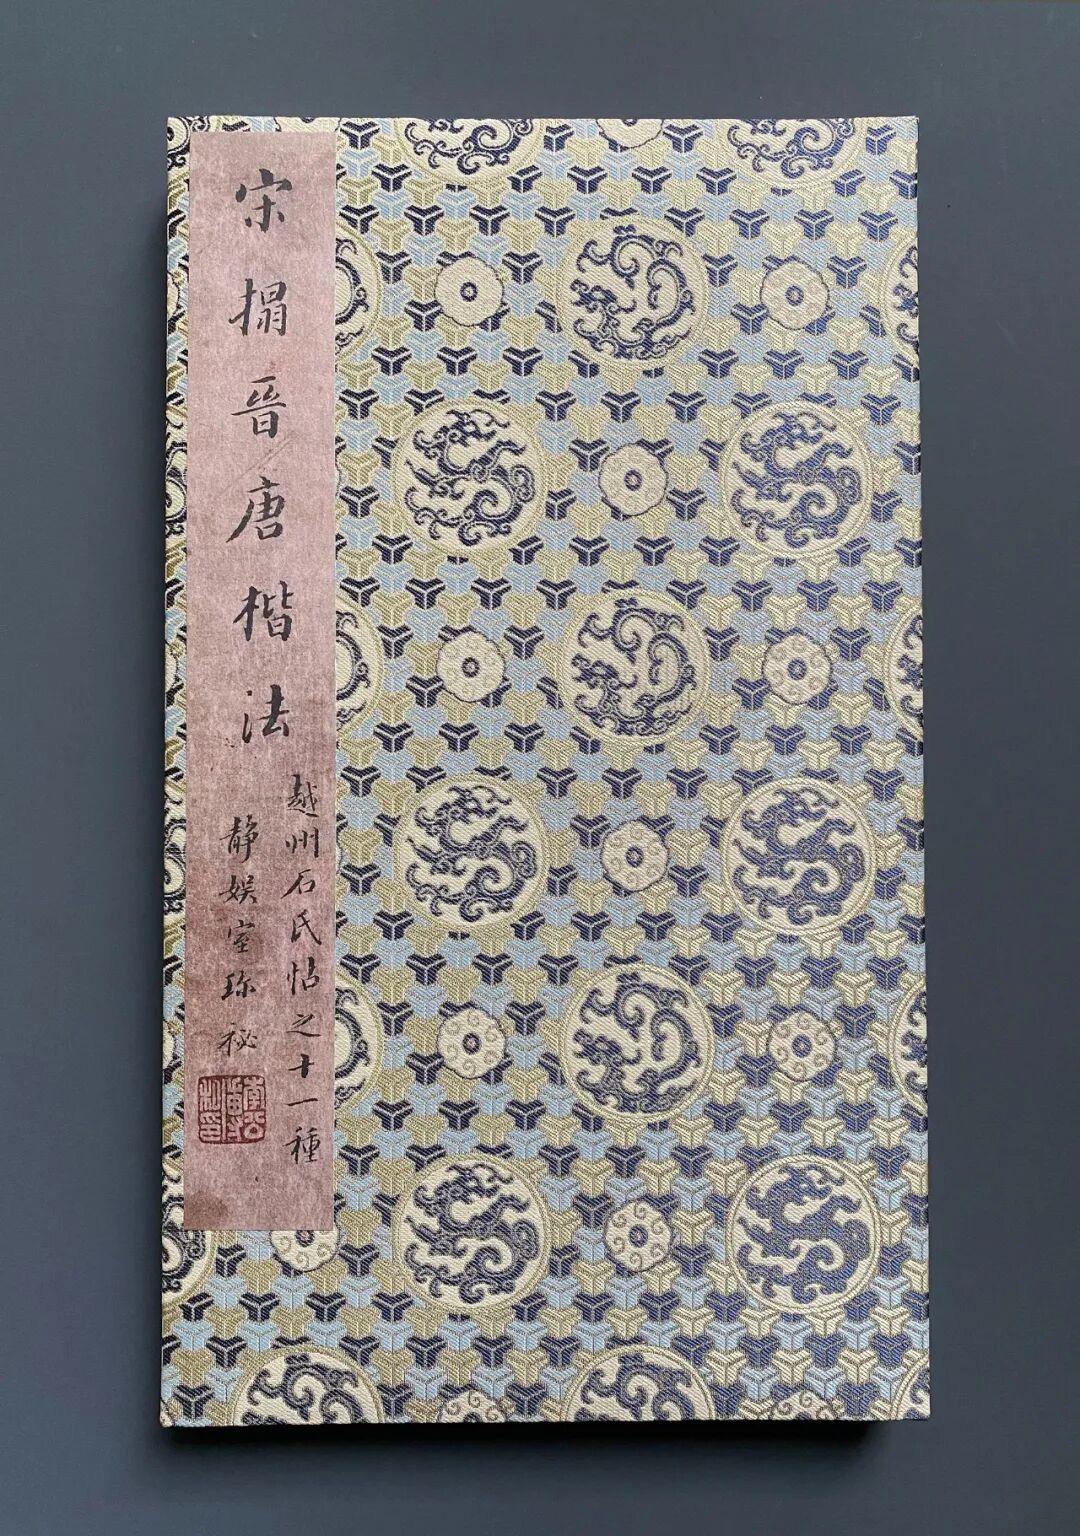 宋搨晉唐楷法
越州石氏帖之十一種
靜娱室珍秘